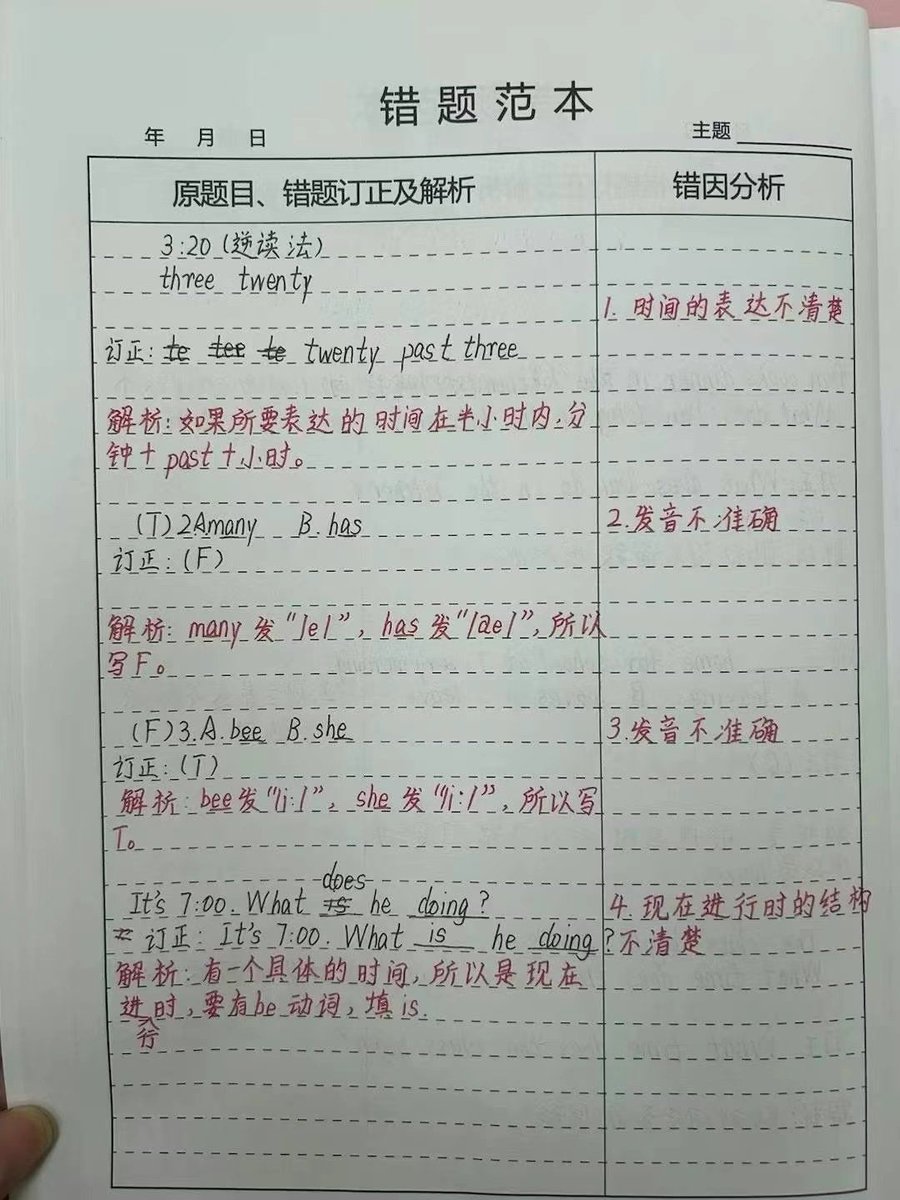 错题范本
年 月 日
主题
原题目、错题订正及解析
错因分析
3:20 (逆读法)
three twenty
1. 时间的表达不清楚
订正: te tee te twenty past three
解析: 如果所要表达的时间在半小时内,分
钟+past+小时。
(T) 2A many B. has
2. 发音不准确
订正: (F)
解析: many 发"/e/", has 发"/ae/",所以
写F。
(F) 3. A. bee B. she
3. 发音不准确
订正: (T)
解析: bee 发"/i:/", she 发"/i:/", 所以写
T。
does
It's 7:00. What is he doing?
4. 现在进行时的结构
订正: It's 7:00. What is he doing?
不清楚
解析: 有一个具体的时间,所以是现在
进时,要有be动词,填is.
行